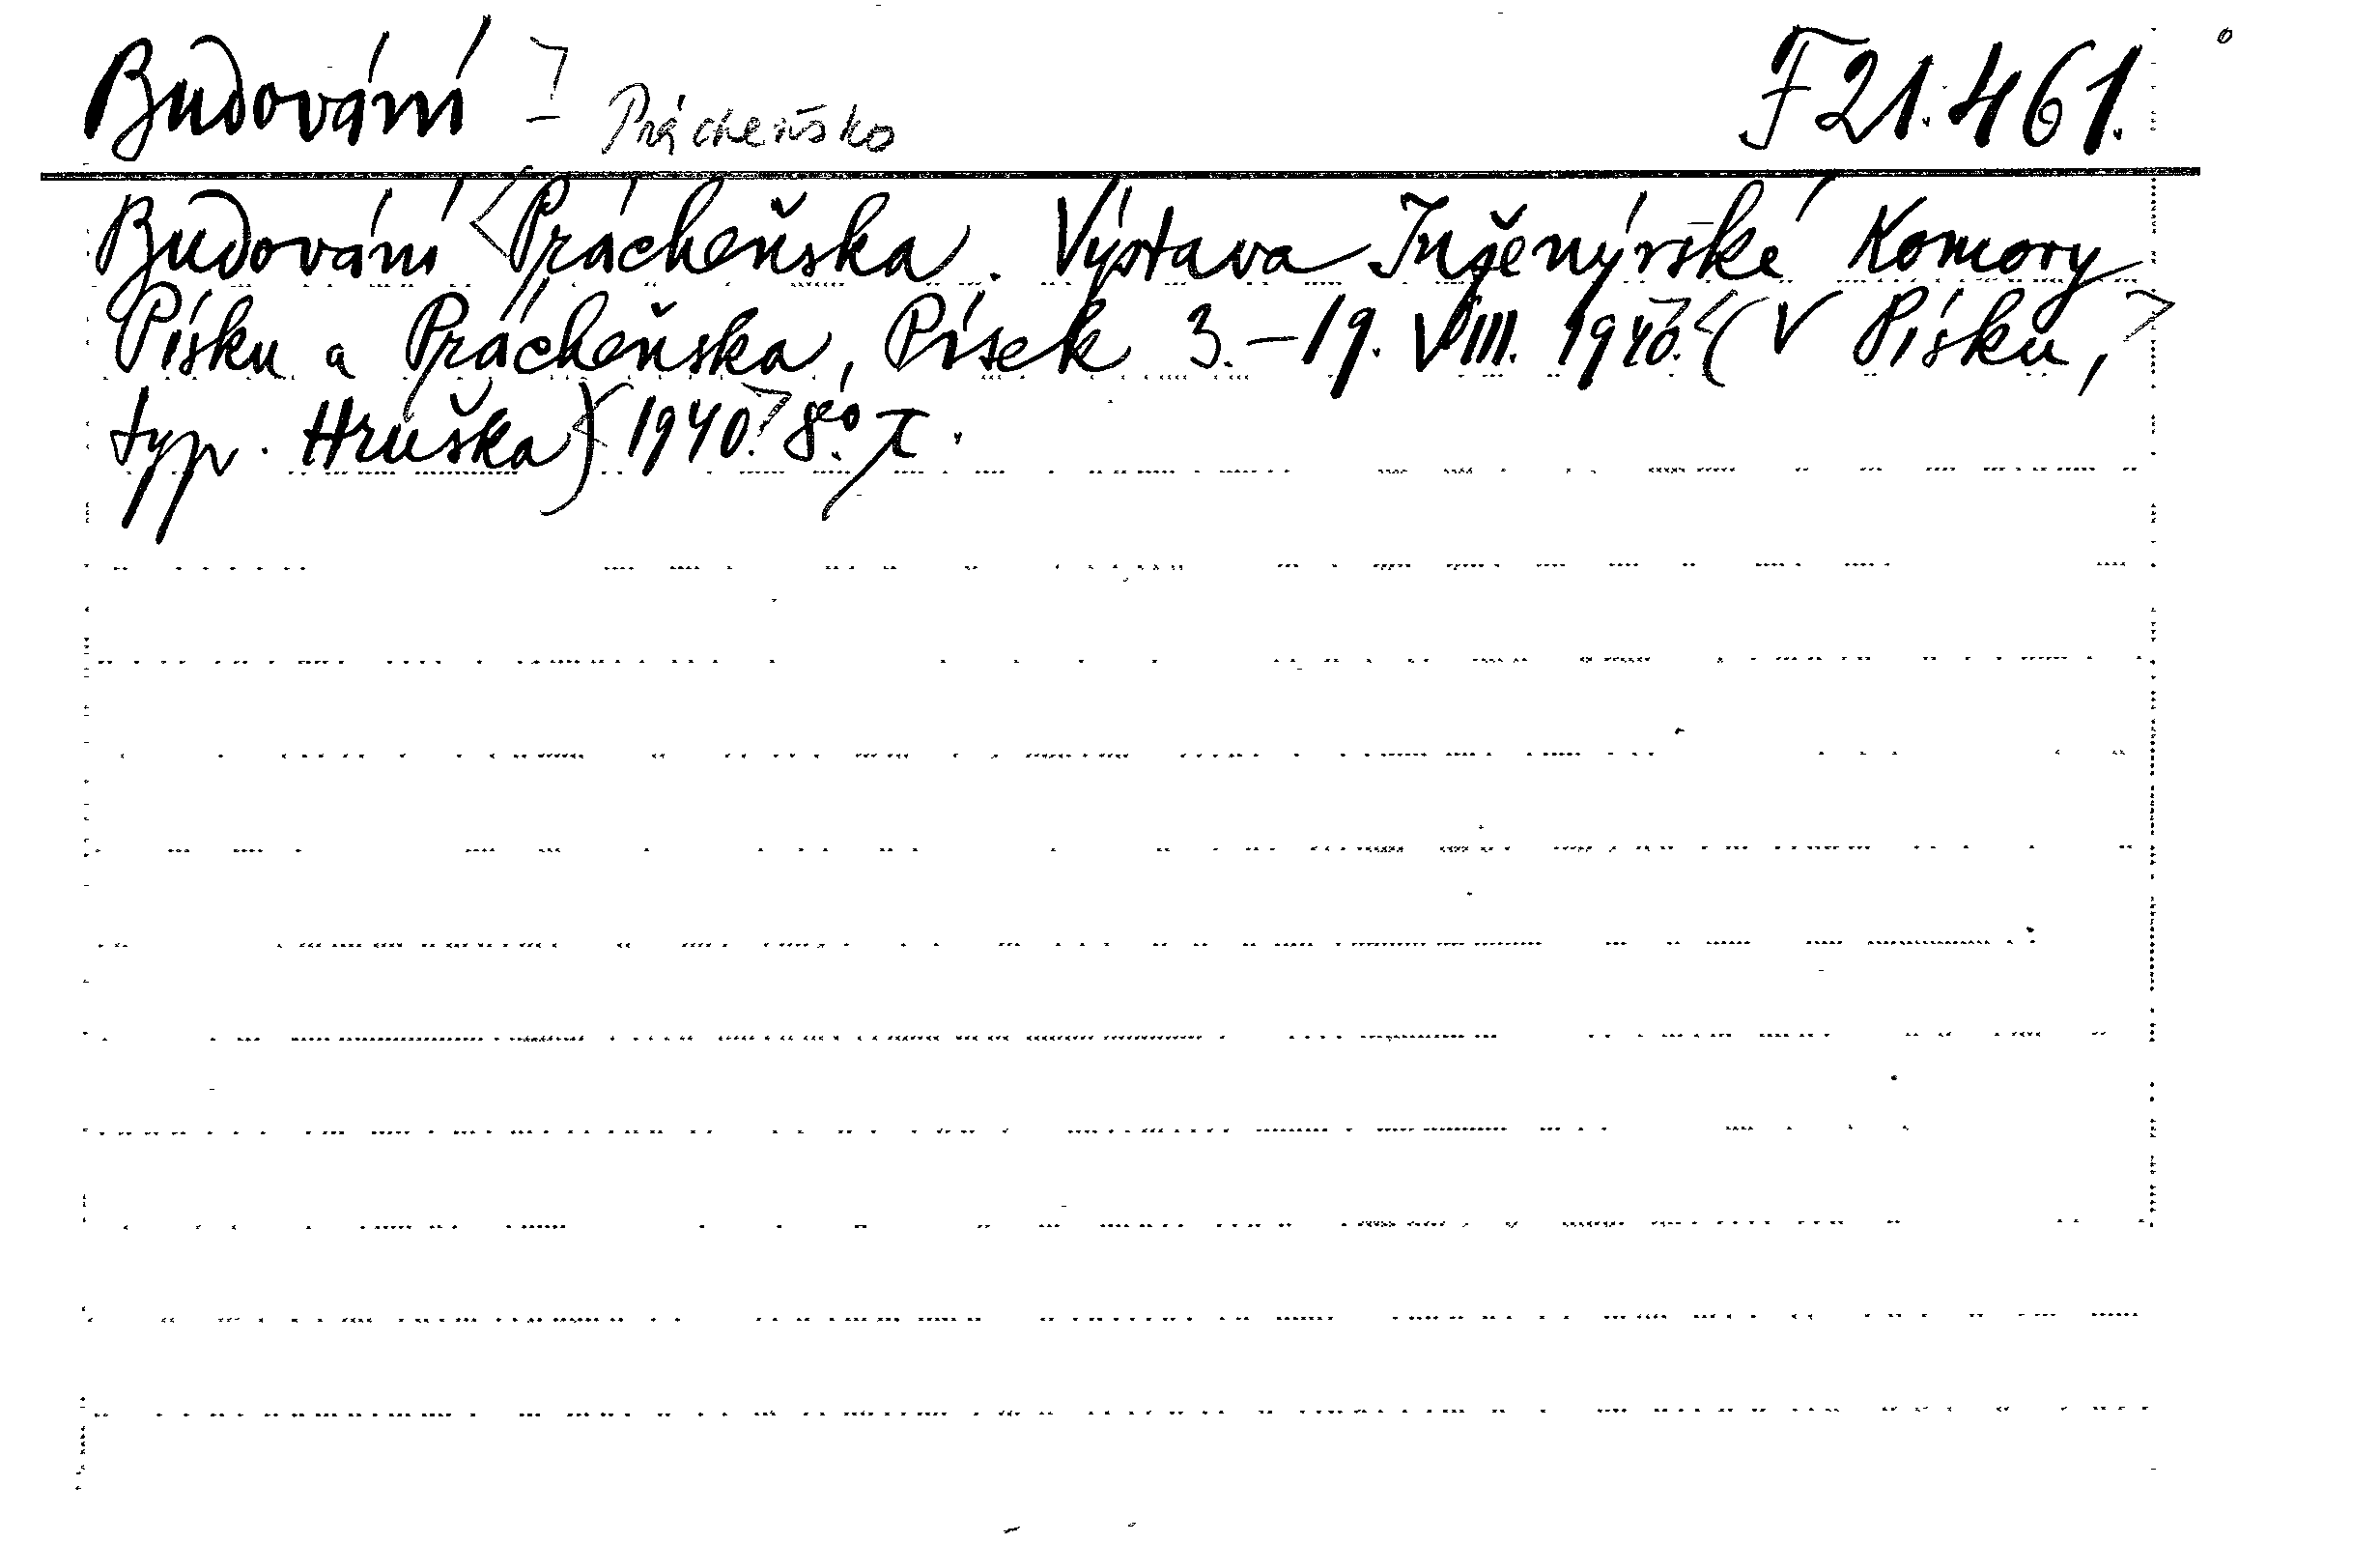 Budování - Prácheňsko F 21.461.
Budování Prácheňska. Výstava Inženýrské Komory
Písku a Prácheňska, Písek 3.-19. VIII. 1940. (V Písku,
typ. Hruška) 1940. 8°.